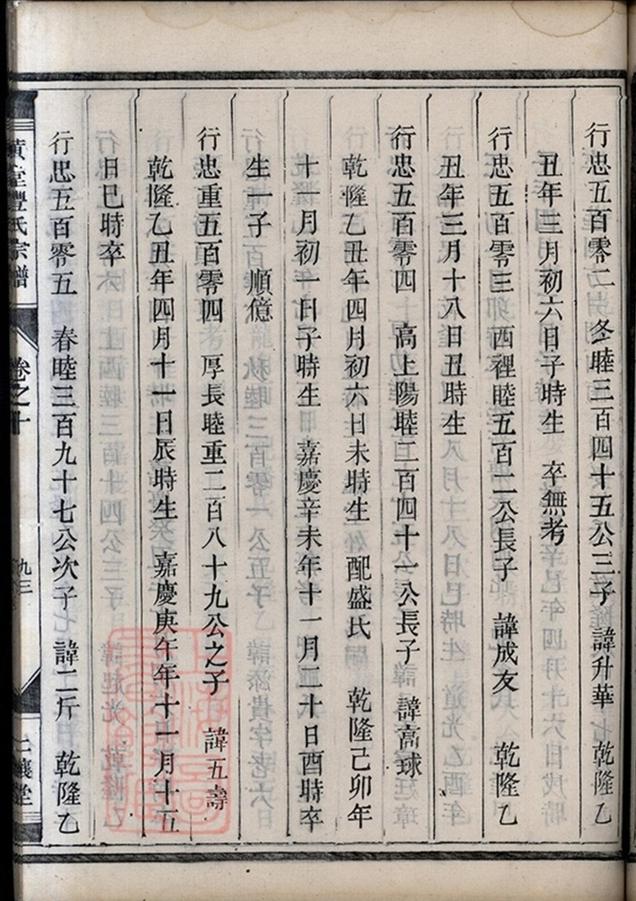 行忠五百零二 冬睦三百四十五公三子 諱升華 乾隆乙
丑年三月初六日子時生 卒無考
行忠五百零三 西裡睦五百二公長子 諱成友 乾隆乙
丑年三月十八日丑時生
行忠五百零四 高上陽睦二百四十一公長子 諱高球
乾隆乙丑年四月初六日未時生 配盛氏 乾隆己卯年
十一月初一日子時生 嘉慶辛未年十一月二十日酉時卒
生一子 順億
行忠重五百零四 厚長睦重二百八十九公之子 諱五壽
乾隆乙丑年四月十一日辰時生 嘉慶庚午年十一月十五
日巳時卒
行忠五百零五 春睦三百九十七公次子 諱二斤 乾隆乙
氏宗譜 卷之十 九三